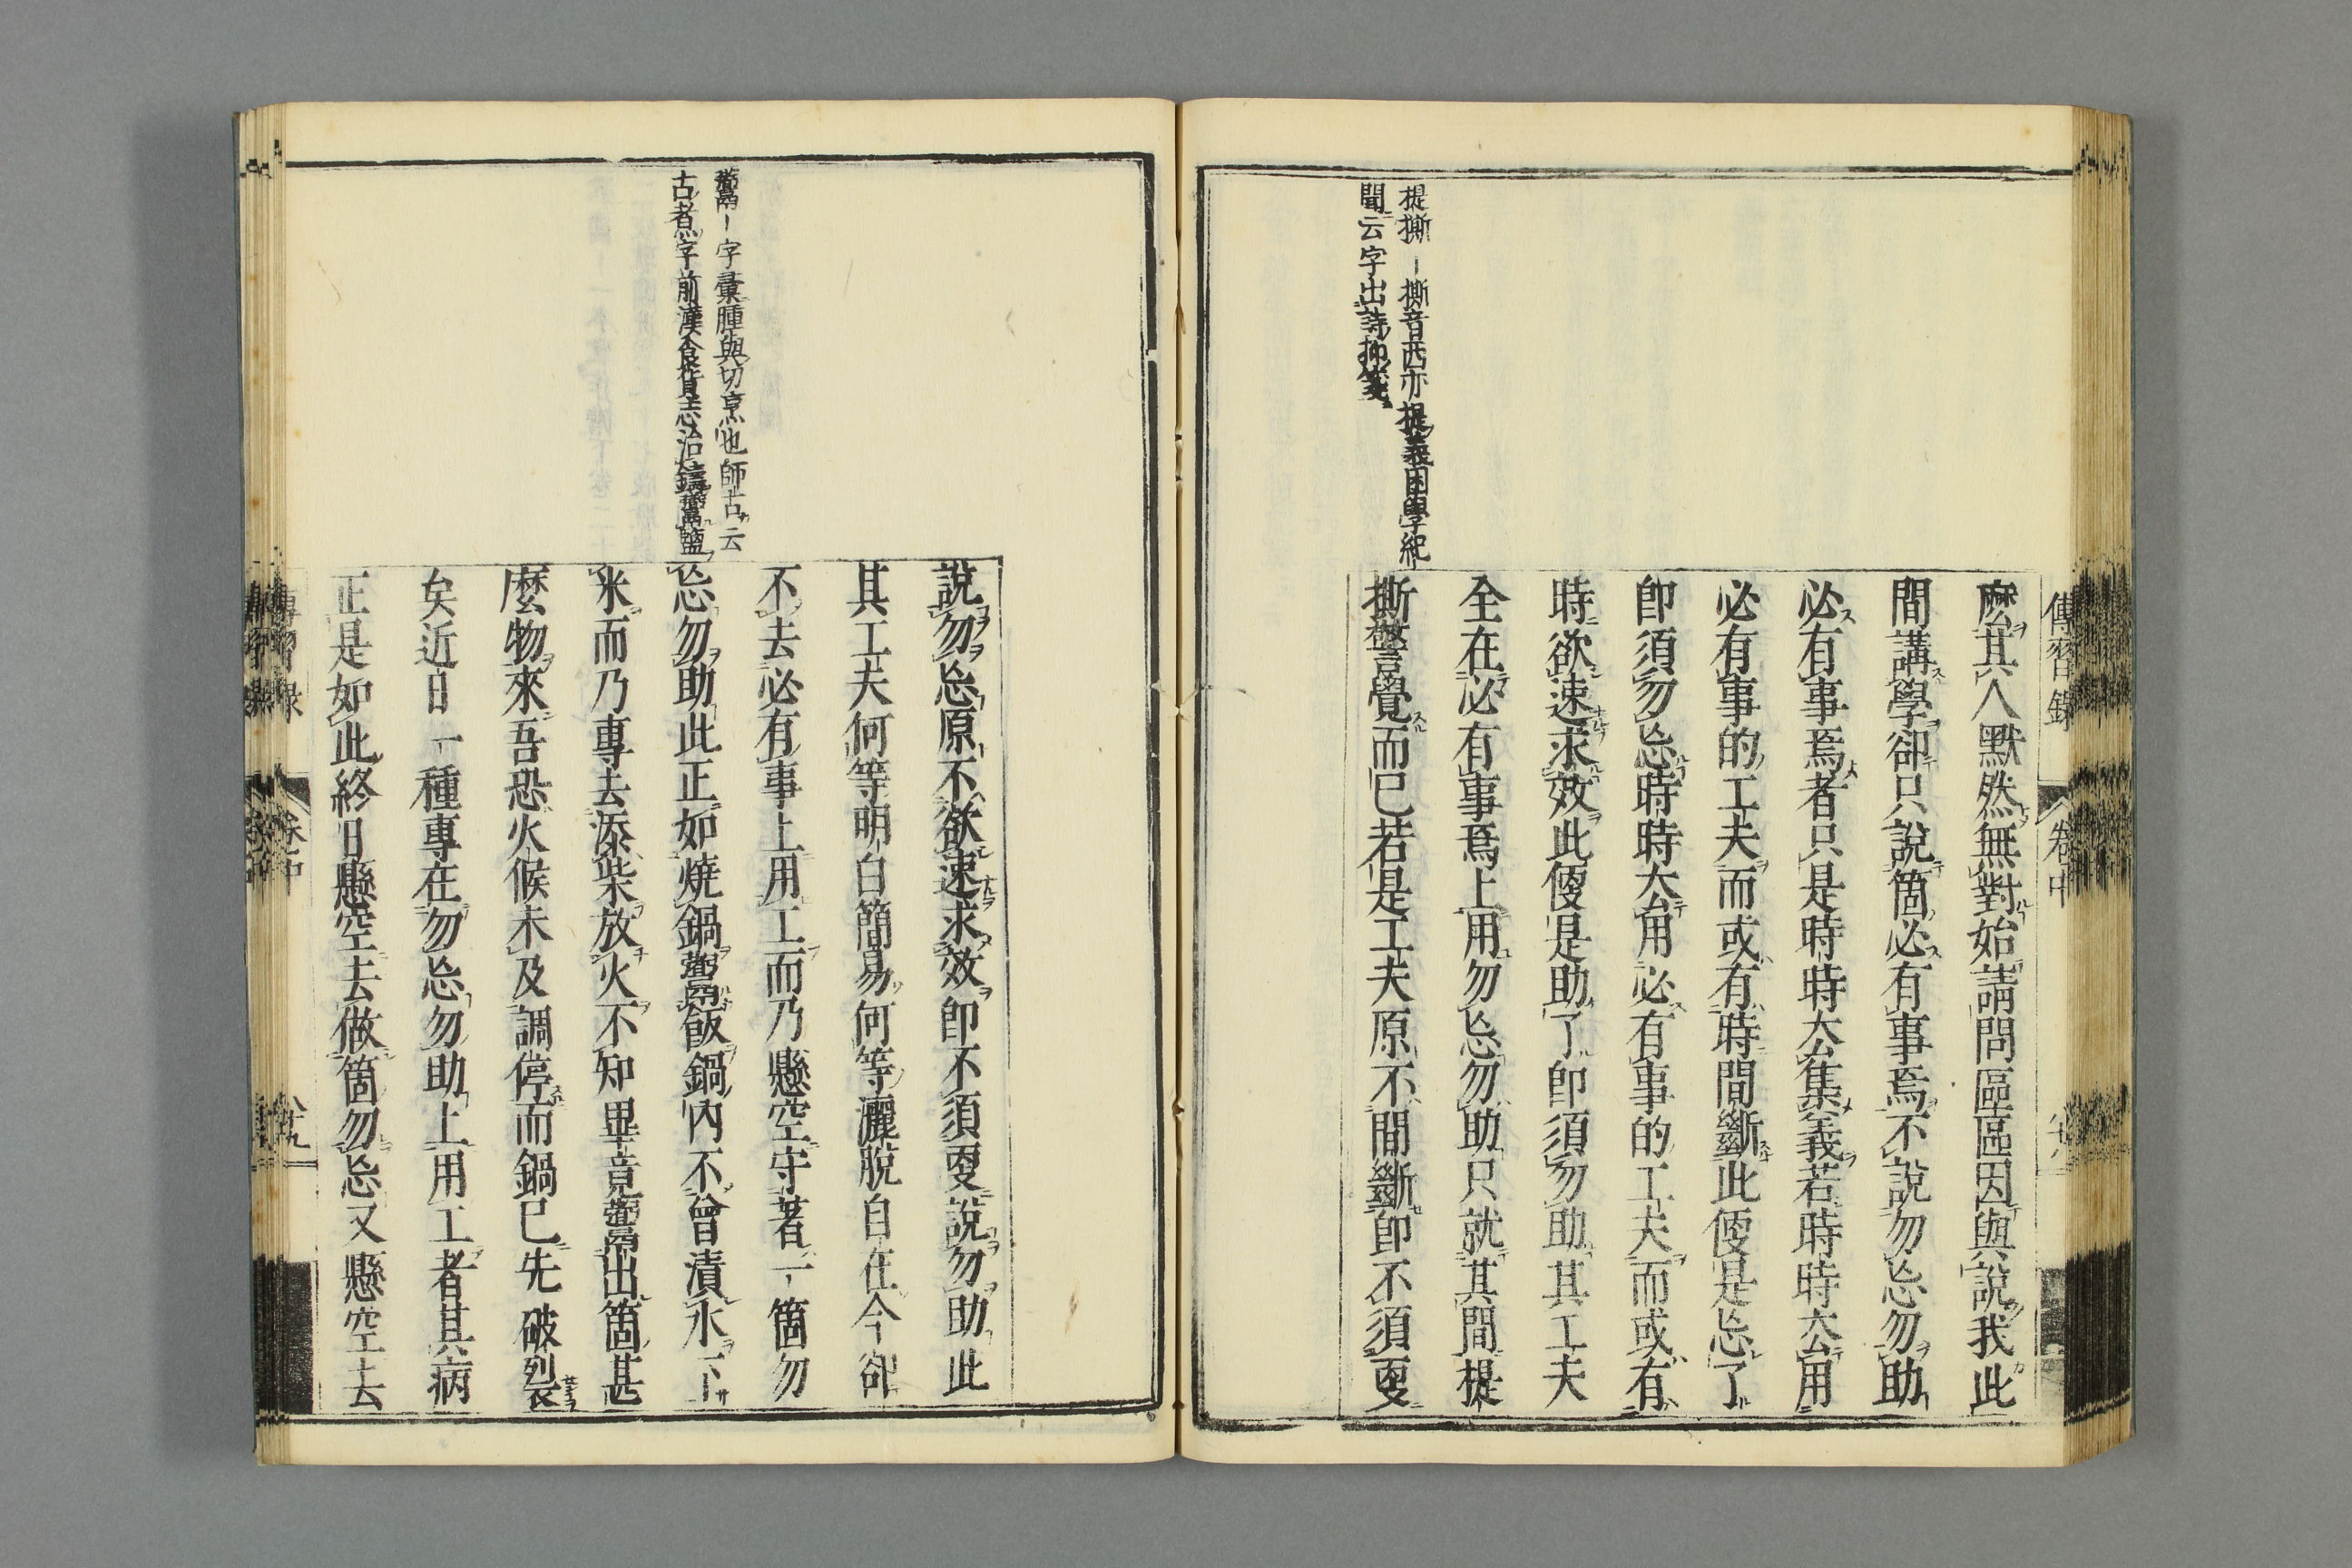 傳習錄 卷中
提撕－撕音西亦提義困學紀
聞云字出詩抑箋
麽其人默然無對始請問區區因與說我此
間講學卻只說箇必有事焉不說勿忘勿助
必有事焉者只是時時去集義若時時去用
必有事的工夫而或有時間斷此便是忘了
即須勿忘時時去用必有事的工夫而或有
時欲速求效此便是助了即須勿助其工夫
全在必有事焉上用勿忘勿助只就其間提
撕警覺而已若是工夫原不間斷即不須更
鬻－字彙腫與切烹也師古云
古煮字前漢食貨志治鑄鬻鹽
說勿忘原不欲速求效即不須更說勿助此
其工夫何等明白簡易何等灑脫自在今卻
不去必有事上用工而乃懸空守著一箇勿
忘勿助此正如燒鍋鬻飯鍋內不曾漬水下
米而乃專去添柴放火不知畢竟鬻出箇甚
麼物來吾恐火候未及調停而鍋已先破裂
矣近日一種專在勿忘勿助上用工者其病
正是如此終日懸空去做箇勿忘又懸空去
傳習錄 卷中 八十九